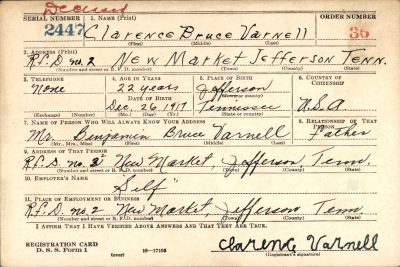 Deceased
SERIAL NUMBER 1. NAME (Print) ORDER NUMBER
2447 Clarence Bruce Varnell 36
(First) (Middle) (Last)
2. ADDRESS (Print)
R.F.D. no. 2 New Market Jefferson Tenn.
(Number and street or R. F. D. number) (Town) (County) (State)
3. TELEPHONE 4. AGE IN YEARS 5. PLACE OF BIRTH 6. COUNTRY OF CITIZENSHIP
None 22 years Jefferson
DATE OF BIRTH (Town or county)
Dec. 26 1917 Tennessee U.S.A
(Exchange) (Number) (Mo.) (Day) (Yr.) (State or country)
7. NAME OF PERSON WHO WILL ALWAYS KNOW YOUR ADDRESS 8. RELATIONSHIP OF THAT PERSON
Mr. Benjamin Bruce Varnell Father
(Mr., Mrs., Miss) (First) (Middle) (Last)
9. ADDRESS OF THAT PERSON
R.F.D. no. 2 New Market, Jefferson, Tenn.
(Number and street or R. F. D. number) (Town) (County) (State)
10. EMPLOYER'S NAME
"Self"
11. PLACE OF EMPLOYMENT OR BUSINESS
R.F.D. no 2 New Market, Jefferson Tenn.
(Number and street or R. F. D. number) (Town) (County) (State)
I AFFIRM THAT I HAVE VERIFIED ABOVE ANSWERS AND THAT THEY ARE TRUE.
REGISTRATION CARD Clarence Varnell
D. S. S. Form 1 (over) 16—17105 (Registrant's signature)